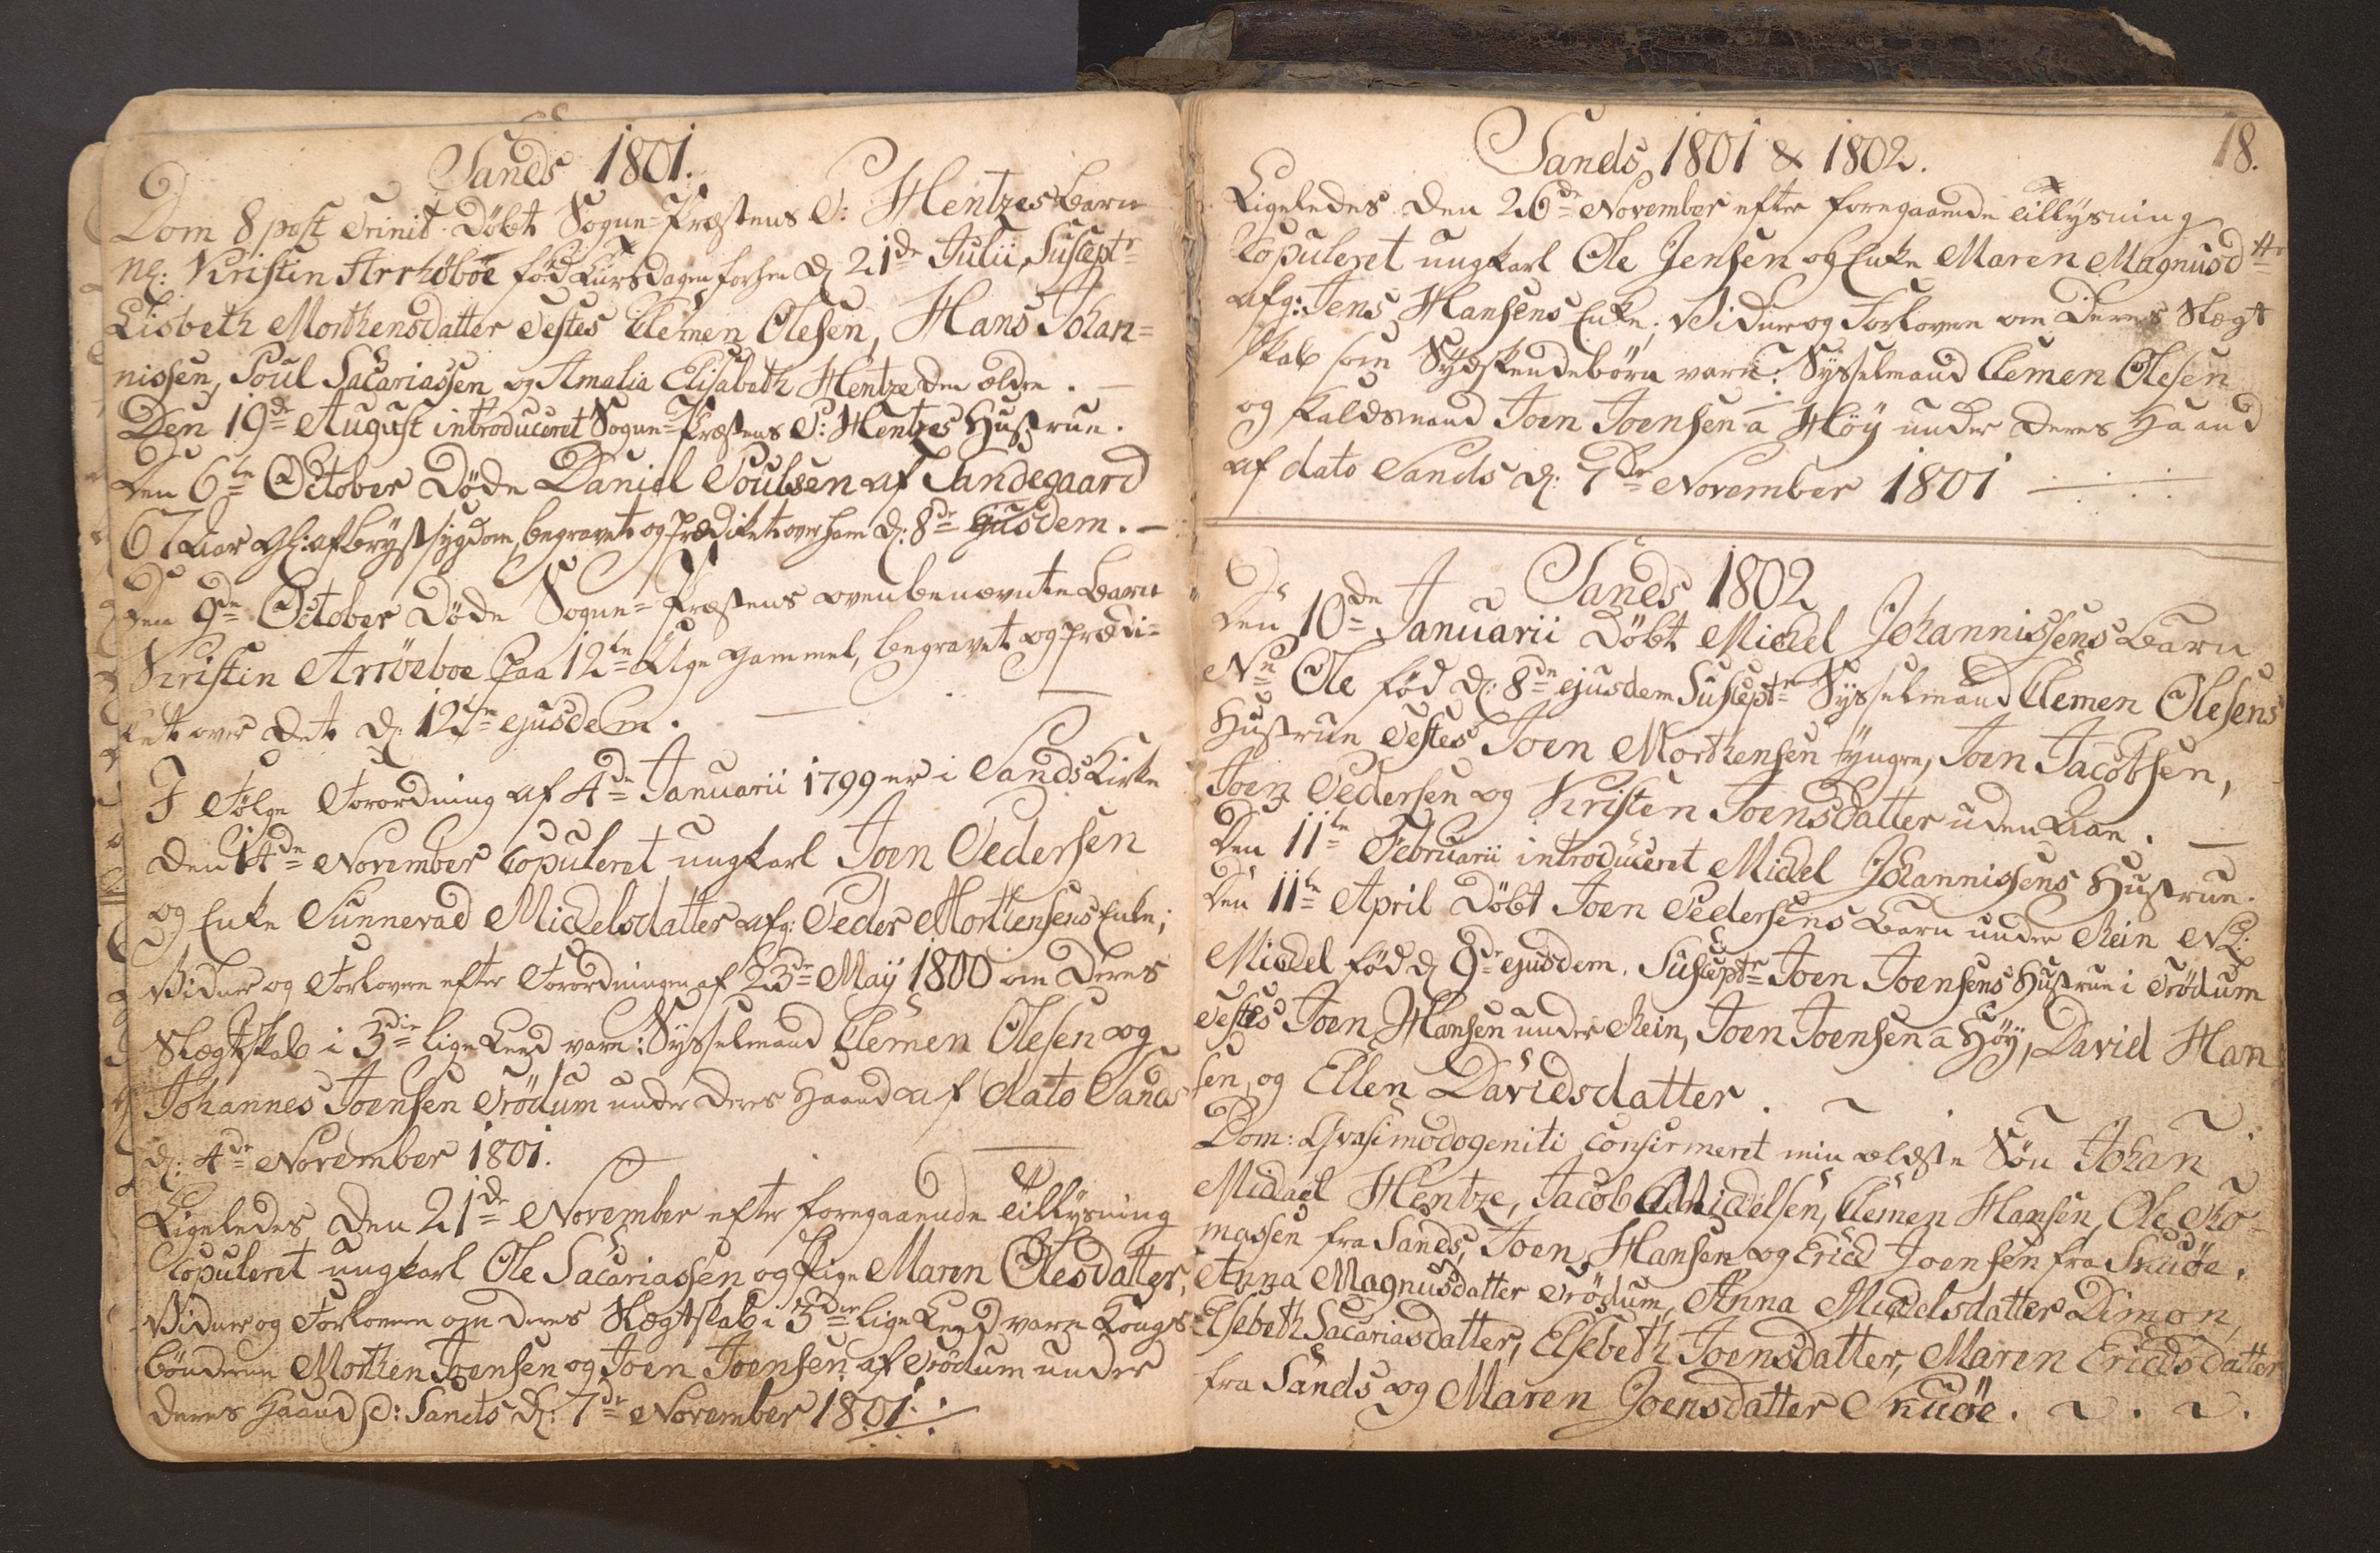 Sands 1801.
Dom 8 post Trinit. Döbt Sogne-Præstens P: Hentzes Barn
Nl: Kristin Arrhöböe född Tiirsdagen forhen d: 21de Julii, Suscept:r
Lisbeth Morthensdatter Testes Clemen Olesen, Hans Johan=
nissen, Poul Sacariassen og Amalia Elisabeth Hentze den ældre. —
Den 19de August introduceret Sogne-Præstens P: Hentzes Hustrue.
Den 6te October Döde Daniel Poulsen af Sandegaard
67 Aar gl: af brystsygdom, begravet og prædiket over ham d: 8de ejusdem. —
Den 9de October Döde Sogne-Præstens ovenbenævnte Barn
Kristin Arröeboe paa 12te Uge gammel, begravet og prædi=
ket over det d: 12te ejusdem. —
I Fölge Forordning af 4de Januarii 1799 er i Sands Kirke
den 14de November Copuleret ungkarl Joen Pedersen
og Enke Sunnevad Mickelsdatter afg: Peder Morthensens Enke;
Vidner og Forlovere efter Forordningen af 23de Maÿ 1800 om deres
Slægtskab i 3die lige Leed vare: Sysselmand Clemen Olesen og
Johannes Joensen Trödum under deres Haand af dato Sands
d: 4de November 1801. —
Ligeledes den 21de November efter foregaaende Tillysning
Copuleret ungkarl Ole Sacariassen og Pige Maren Olesdatter,
Vidner og Forlovere om deres Slægtskab i 3die lige Leed vare Kongs
bönderne Morthen Joensen og Joen Joensen af Trödum under
deres Haand d: Sands d: 7de November 1801.
Sands 1801 & 1802.
18.
Ligeledes den 26de November efter foregaaende Tillysning
Copuleret ungkarl Ole Jensen og Enke Maren Magnusdttr
afg: Jens Hansens Enke; Vidner og Forlovere om Deres Slægt
skab som Sydskendebörn vare: Sysselmand Clemen Olesen
og Kaldsmand Joen Joensen a Höÿ under deres Haand
af dato Sands d: 7de November 1801
Sands 1802
Den 10de Januarii Döbt Mickel Johannissens Barn
Nl: Ole född d: 8de ejusdem Suscept:r Sysselmand Clemen Olesens
Hustrue Testes Joen Morthensen yngre, Joen Jacobsen,
Joen Pedersen og Kristin Joensdatter uden Aae. —
Den 11te Februarii introduceret Mickel Johannissens Hustrue.
Den 11te April Döbt Joen Pedersens Barn under Rein Nl:
Mickel född d 9de ejusdem. Suscept:r Joen Joensens Hustrue i Trödum
Testes Joen Hansen under Rein, Joen Joensen a Höÿ, David Han
sen, og Ellen Davidsdatter.
Dom: Qvasimodogeniti confirmeret min ældste Sön Johan
Michael Hentze, Jacob Mickelsen, Clemen Hansen, Ole Tho=
massen fra Sands, Joen Hansen og Erick Joensen fra Skuöe.
Anna Magnusdatter Trödum, Anna Mickelsdatter Dimon,
Elsebeth Sacariasdatter, Elsebeth Joensdatter, Maren Ericksdatter
fra Sands og Maren Joensdatter Skuöe.